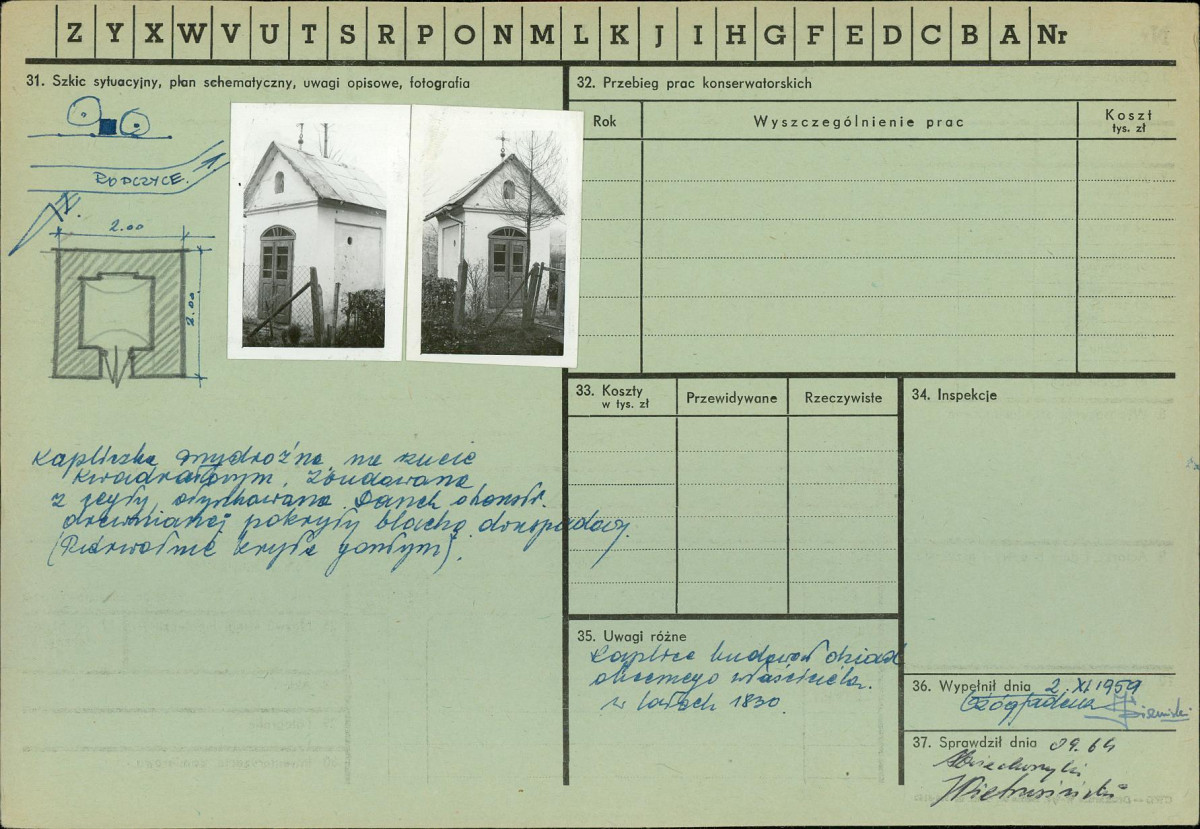 Z Y X W V U T S R P O N M L K J I H G F E D C B A Nr
31. Szkic sytuacyjny, plan schematyczny, uwagi opisowe, fotografia
RODCZYCE.
2.00
2.00
Kapliczka przydrożna na rzucie
kwadratowym. Zbudowana
z cegły, otynkowana. Dach o konstr.
drewnianej pokryty blachą dwuspadowy.
(Pierwotnie kryta gontym).
32. Przebieg prac konserwatorskich
Rok
Wyszczególnienie prac
Koszt
tys. zł
33. Koszty
w tys. zł
Przewidywane
Rzeczywiste
34. Inspekcje
35. Uwagi różne
Kaplicę budował dziad
obecnego właściciela.
w latach 1830.
36. Wypełnił dnia 2.XI.1959
37. Sprawdził dnia 09.64